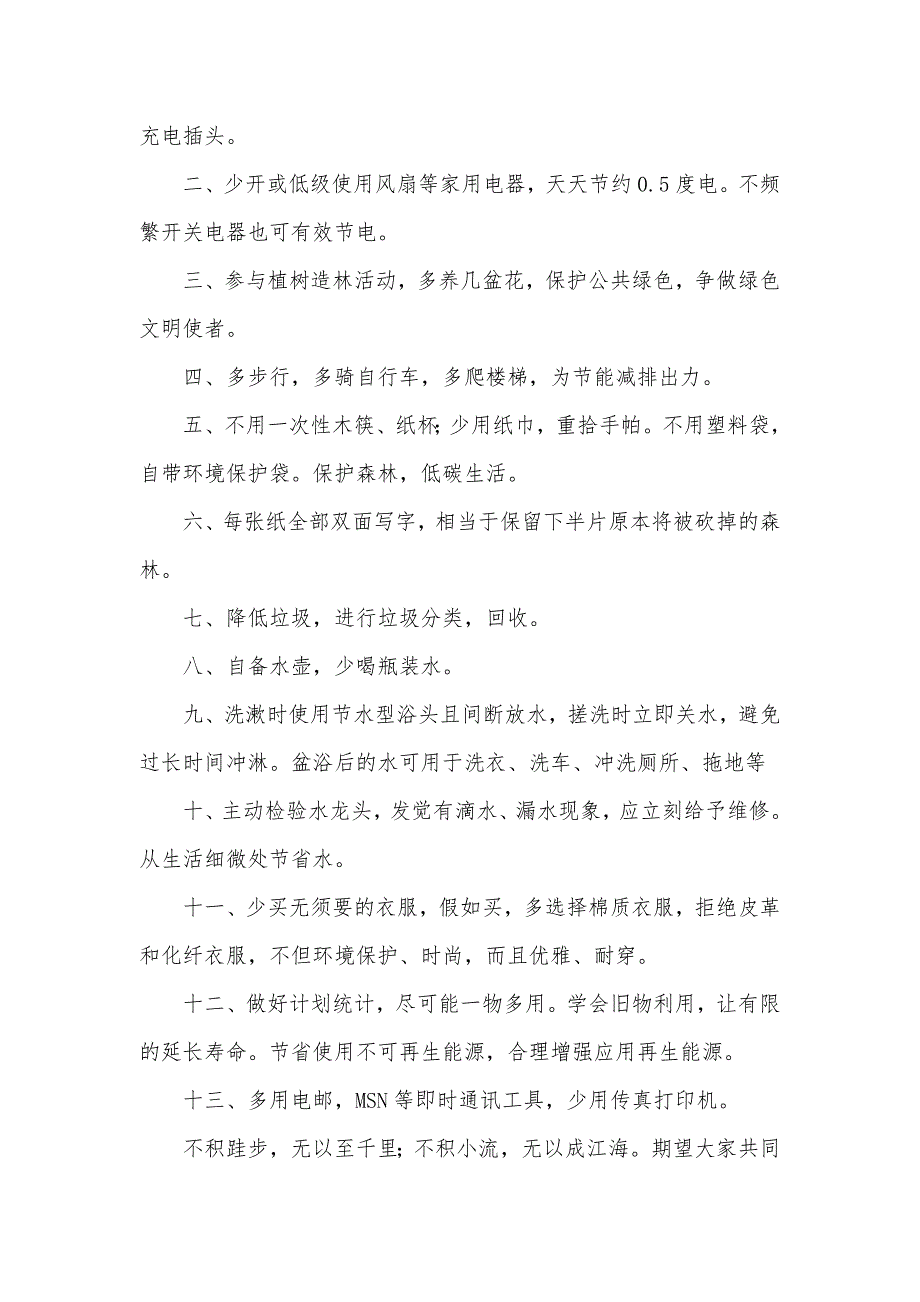 充电插头。
二、少开或低级使用风扇等家用电器，天天节约0.5度电。不频
繁开关电器也可有效节电。
三、参与植树造林活动，多养几盆花，保护公共绿色，争做绿色
文明使者。
四、多步行，多骑自行车，多爬楼梯，为节能减排出力。
五、不用一次性木筷、纸杯;少用纸巾，重拾手帕。不用塑料袋，
自带环境保护袋。保护森林，低碳生活。
六、每张纸全部双面写字，相当于保留下半片原本将被砍掉的森
林。
七、降低垃圾，进行垃圾分类，回收。
八、自备水壶，少喝瓶装水。
九、洗漱时使用节水型浴头且间断放水，搓洗时立即关水，避免
过长时间冲淋。盆浴后的水可用于洗衣、洗车、冲洗厕所、拖地等
十、主动检验水龙头，发觉有滴水、漏水现象，应立刻给予维修。
从生活细微处节省水。
十一、少买无须要的衣服，假如买，多选择棉质衣服，拒绝皮革
和化纤衣服，不但环境保护、时尚，而且优雅、耐穿。
十二、做好计划统计，尽可能一物多用。学会旧物利用，让有限
的延长寿命。节省使用不可再生能源，合理增强应用再生能源。
十三、多用电邮，MSN等即时通讯工具，少用传真打印机。
不积跬步，无以至千里;不积小流，无以成江海。期望大家共同